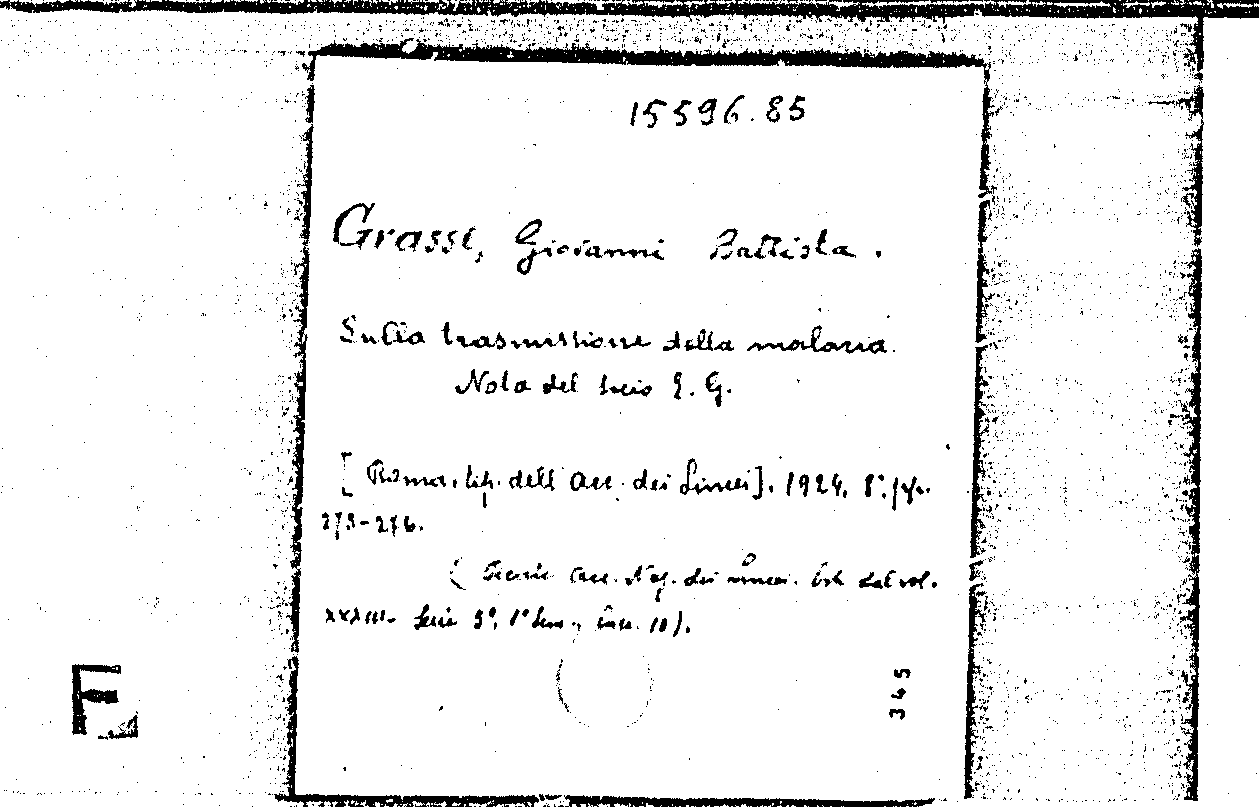 15596.85
Grassi, Giovanni Battista.
Sulla trasmissione della malaria.
Nota del Socio G.
[Roma, tip. dell' Acc. dei Lincei]. 1924. 8°.
273-276.
( Acc. dei Lincei. dal vol.
XXXIII. Serie 5ª, 1° Sem., fasc. 10).
345
F